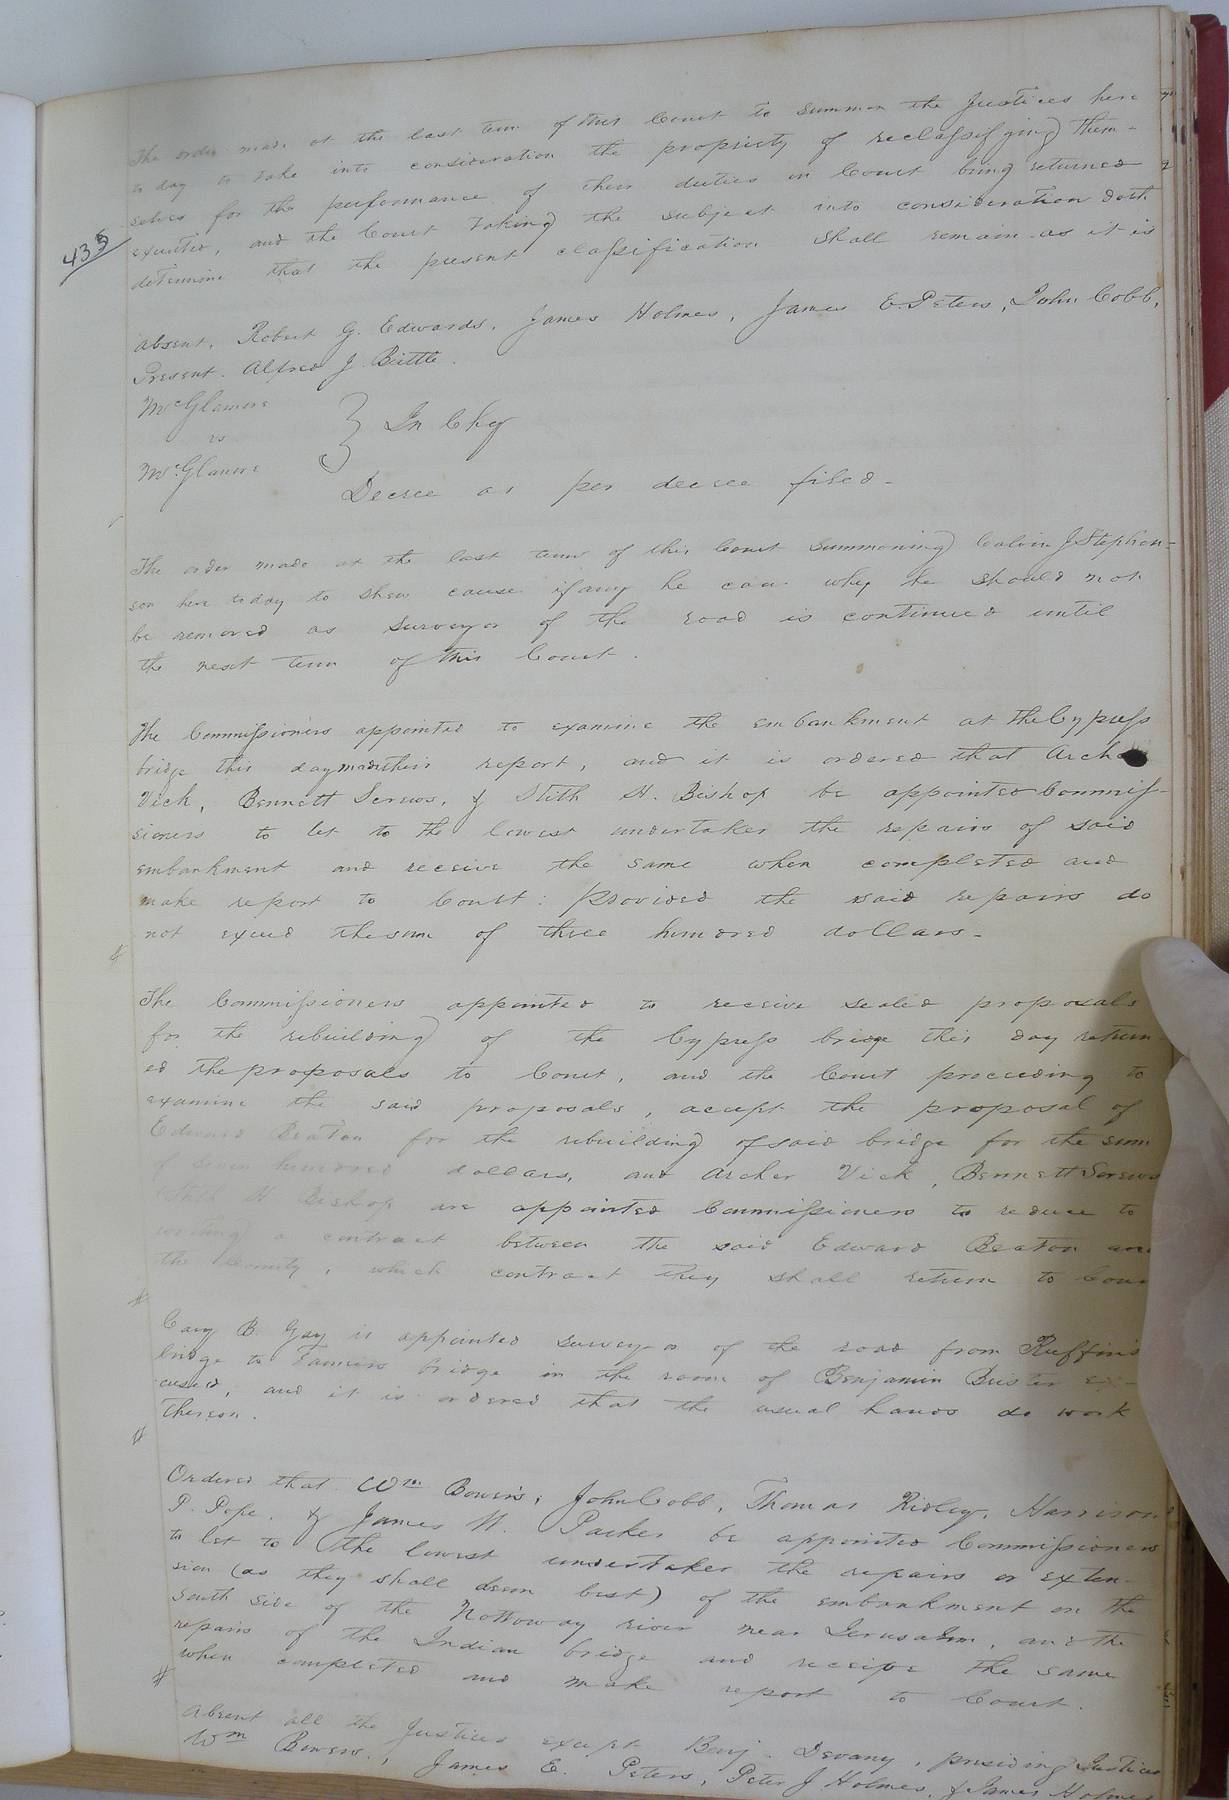 The order made at the last term of this Court to summon the Justices here
to day to take into consideration the propriety of reclassifying them-
selves for the performance of their duties in Court being returned
executed, and the Court taking the subject into consideration doth
determine that the present classification shall remain as it is
435
Absent, Robert G. Edwards, James Holmes, James E. Peters, John Cobb,
Present. Alfred J Brittle.
McGlamore
vs } In Chy
McGlamore
Decree as per decree filed-
The order made at the last term of this Court summoning Calvin J Stephen-
son here today to shew cause if any he can why he should not
be removed as surveyor of the road is continued until
the next term of this Court.
The Commissioners appointed to examine the embankment at the Cypress
bridge this day made their report, and it is ordered that Archer
Vick, Bennett Screws, & Stith H. Bishop be appointed Commis-
sioners to let to the lowest undertaker the repairs of said
embankment and receive the same when completed and
make report to Court: Provided the said repairs do
not exceed the sum of three hundred dollars-
The Commissioners appointed to receive sealed proposals
for the rebuilding of the Cypress bridge this day return-
ed the proposals to Court, and the Court proceeding to
examine the said proposals, accept the proposal of
Edward Beaton for the rebuilding of said bridge for the sum
of seven hundred dollars, and Archer Vick, Bennett Screws
Stith H Bishop are appointed Commissioners to reduce to
writing a contract between the said Edward Beaton and
the County, which contract they shall return to Cour
Cary B. Gay is appointed surveyor of the road from Ruffin's
bridge to bridge in the room of Benjamin Brister ex-
cused, and it is ordered that the usual hands do work
thereon.
Ordered that Wm Bowers, John Cobb, Thomas Ridley, Harrison
P. Pope, & James W. Parker be appointed Commissioners
to let to the lowest undertaker the repairs or exten-
sion (as they shall deem best) of the embankment on the
south side of the Nottoway river near Jerusalem, and the
repairs of the Indian bridge and receive the same
when completed and make report to Court.
Absent all the Justices except Benj. Devany, presiding Justice
Wm Bowers, James E. Peters, Peter J Holmes, & James Holmes